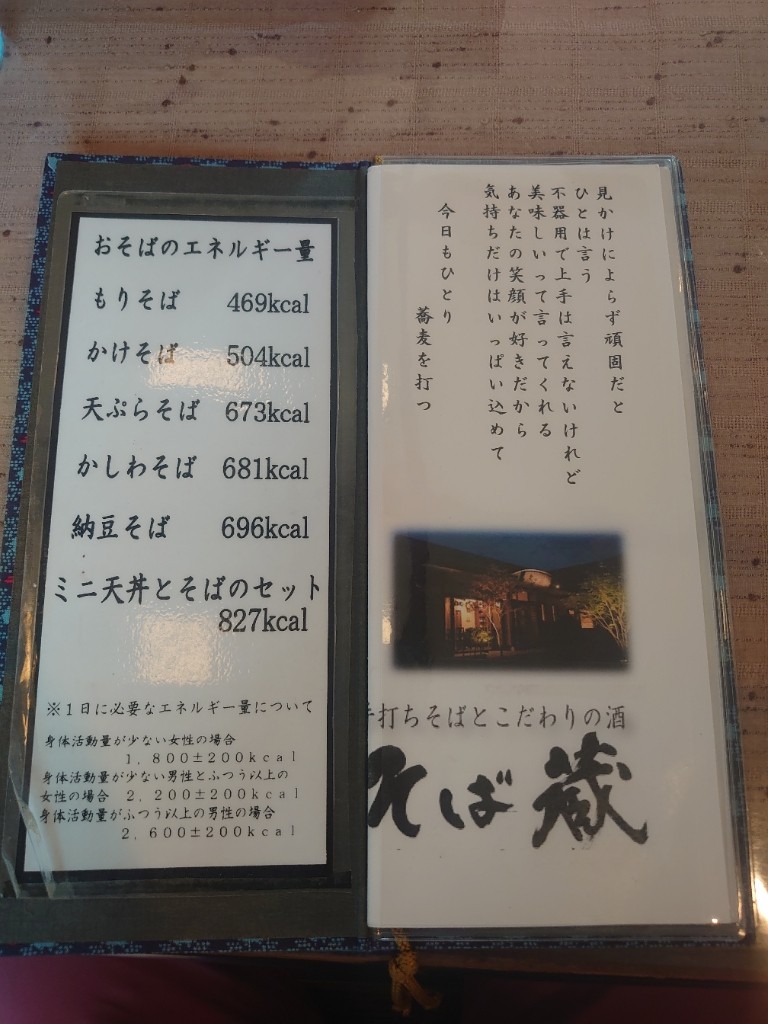 おそばのエネルギー量
もりそば 469kcal
かけそば 504kcal
天ぷらそば 673kcal
かしわそば 681kcal
納豆そば 696kcal
ミニ天丼とそばのセット
827kcal
※1日に必要なエネルギー量について
身体活動量が少ない女性の場合
1,800±200kcal
身体活動量が少ない男性とふつう以上の
女性の場合 2,200±200kcal
身体活動量がふつう以上の男性の場合
2,600±200kcal
見かけによらず頑固だと
ひとは言う
不器用で上手は言えないけれど
美味しいって言ってくれる
あなたの笑顔が好きだから
気持ちだけはいっぱい込めて
今日もひとり
蕎麦を打つ
手打ちそばとこだわりの酒
そば蔵